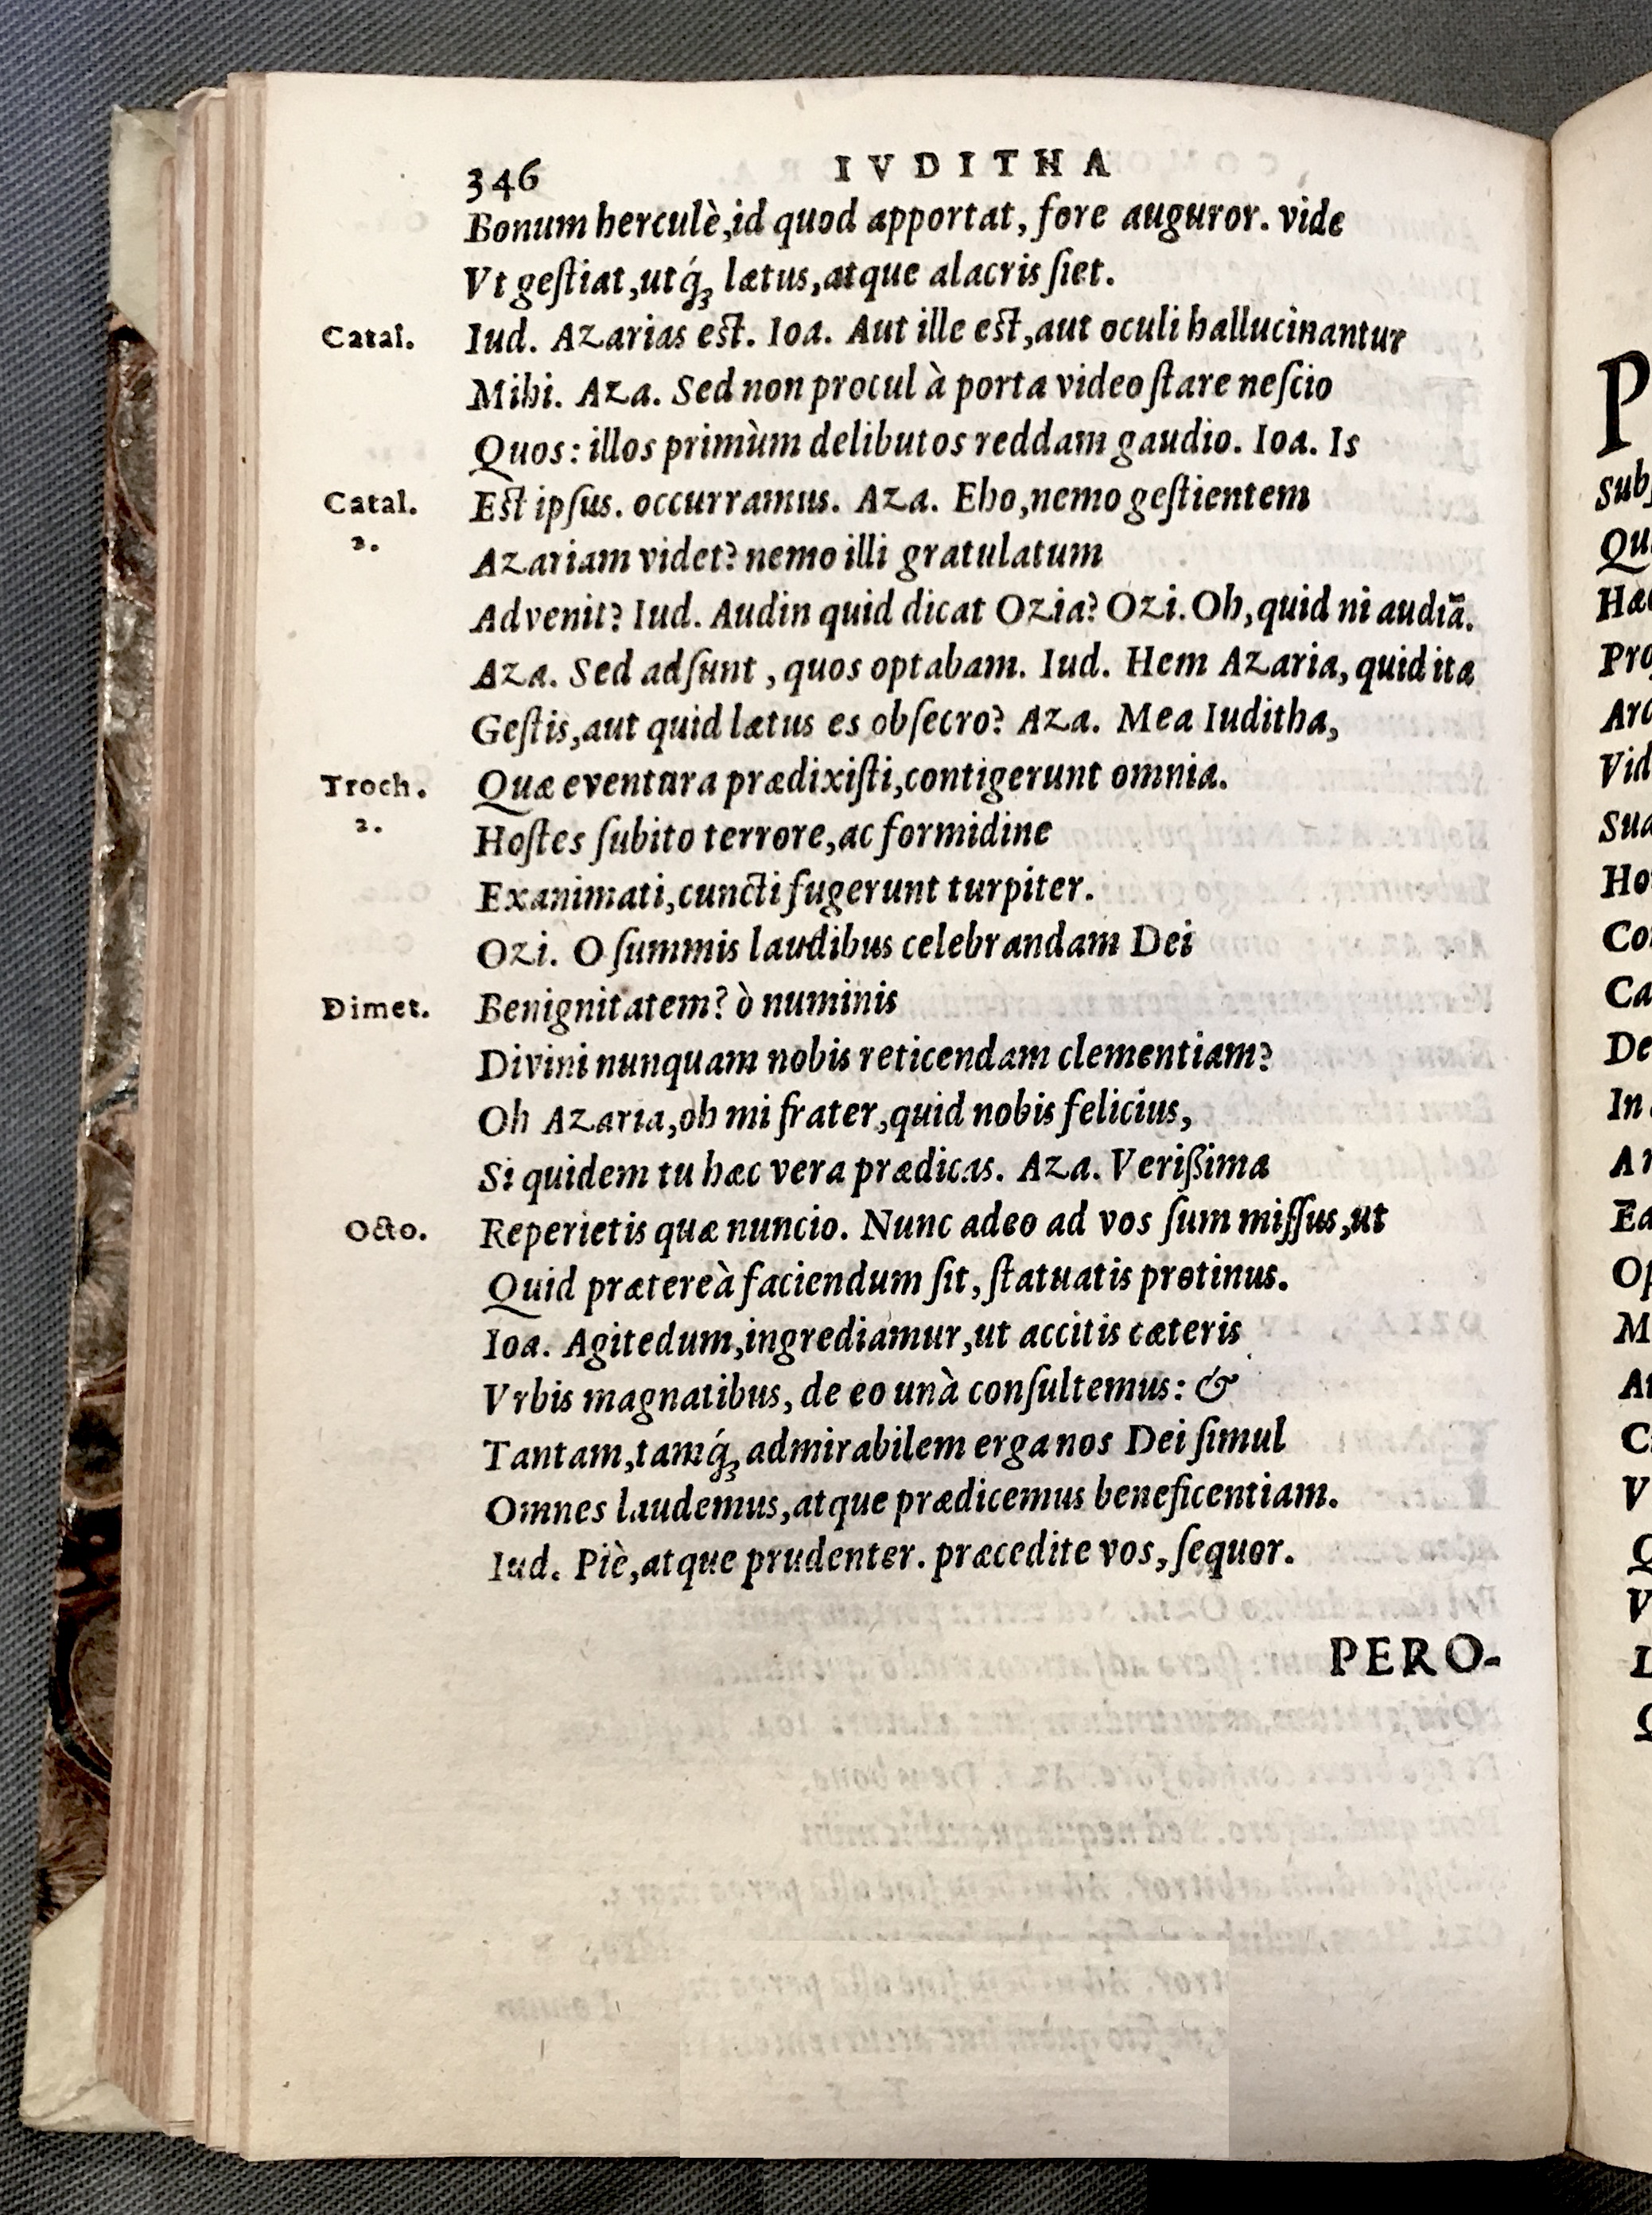 346 IVDITHA
Bonum herculè,id quod apportat, fore auguror. vide
Vt geſtiat,utq́ꝫ lætus,atque alacris ſiet.
Catal. Iud. Azarias eſt. Ioa. Aut ille eſt,aut oculi hallucinantur
Mihi. Aza. Sed non procul à porta video ſtare neſcio
Quos: illos primùm delibutos reddam gaudio. Ioa. Is
Catal. Eſt ipſus. occurramus. Aza. Eho,nemo geſtientem
2. Azariam videt? nemo illi gratulatum
Advenit? Iud. Audin quid dicat Ozia? Ozi. Oh,quid ni audiā.
Aza. Sed adſunt , quos optabam. Iud. Hem Azaria, quid ita
Geſtis,aut quid lætus es obſecro? Aza. Mea Iuditha,
Troch. Quæ eventura prædixiſti,contigerunt omnia.
2. Hoſtes ſubito terrore,ac formidine
Exanimati,cuncti fugerunt turpiter.
Ozi. O ſummis laudibus celebrandam Dei
Dimet. Benignitatem? ò numinis
Divini nunquam nobis reticendam clementiam?
Oh Azaria,oh mi frater,quid nobis felicius,
Si quidem tu hæc vera prædicas. Aza. Verißima
Octo. Reperietis quæ nuncio. Nunc adeo ad vos ſum miſſus,ut
Quid prætereà faciendum ſit, ſtatuatis protinus.
Ioa. Agitedum,ingrediamur,ut accitis cæteris
Vrbis magnatibus, de eo unà conſultemus: &
Tantam,tamq́ꝫ admirabilem erga nos Dei ſimul
Omnes laudemus,atque prædicemus beneficentiam.
Iud. Piè,atque prudenter. præcedite vos, ſequor.
PERO-
P
Subj
Qu
Hæ
Pro
Arc
Vid
Sua
Ho
Co
Ca
De
In
Ar
Ea
Op
M
At
C
V
Q
V